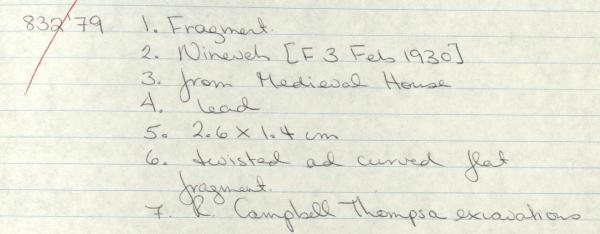 832'79 1. Fragment.
2. Nineveh [F 3 Feb 1930]
3. from Medieval House
4. lead
5. 2.6 x 1.4 cm
6. twisted ad curved flat
fragment.
7. R. Campbell Thompsa excavations